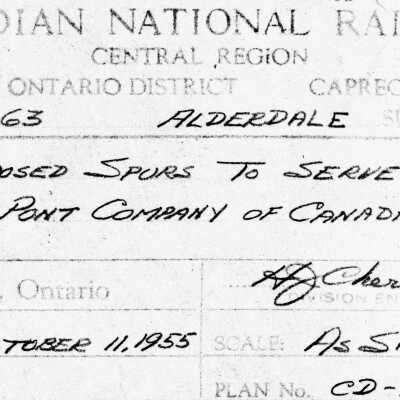 DIAN NATIONAL RAI
CENTRAL REGION
ONTARIO DISTRICT CAPREO
63 ALDERDALE
OSED SPURS TO SERVE
PONT COMPANY OF CANAD
, Ontario
DIVISION EN
TOBER 11, 1955 SCALE: AS S
PLAN No. CD-